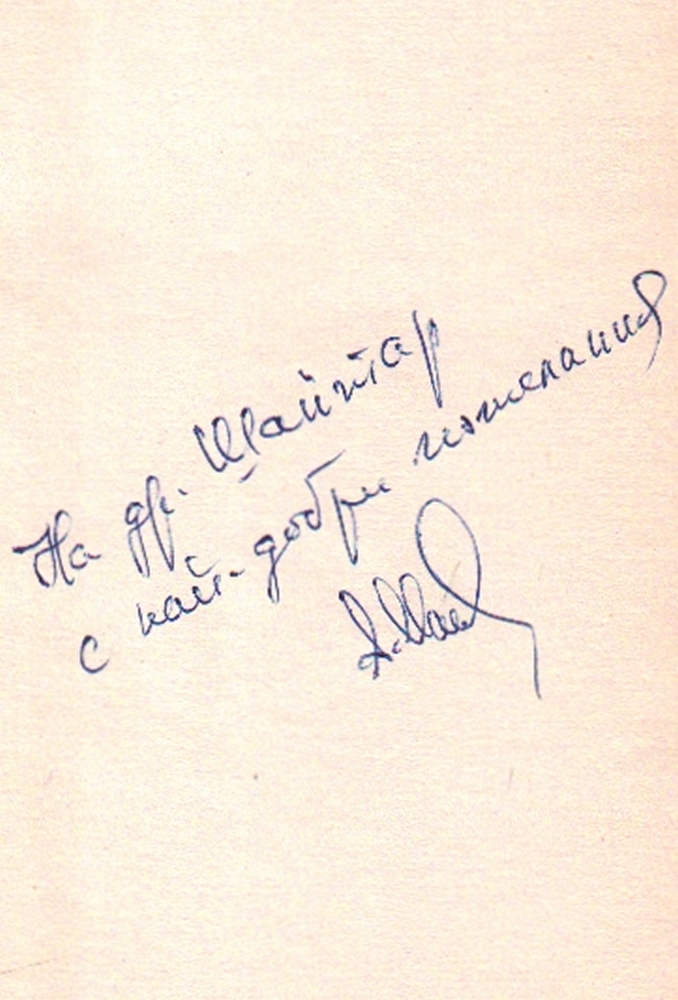 На др. Шайтар
с най-добри пожелания